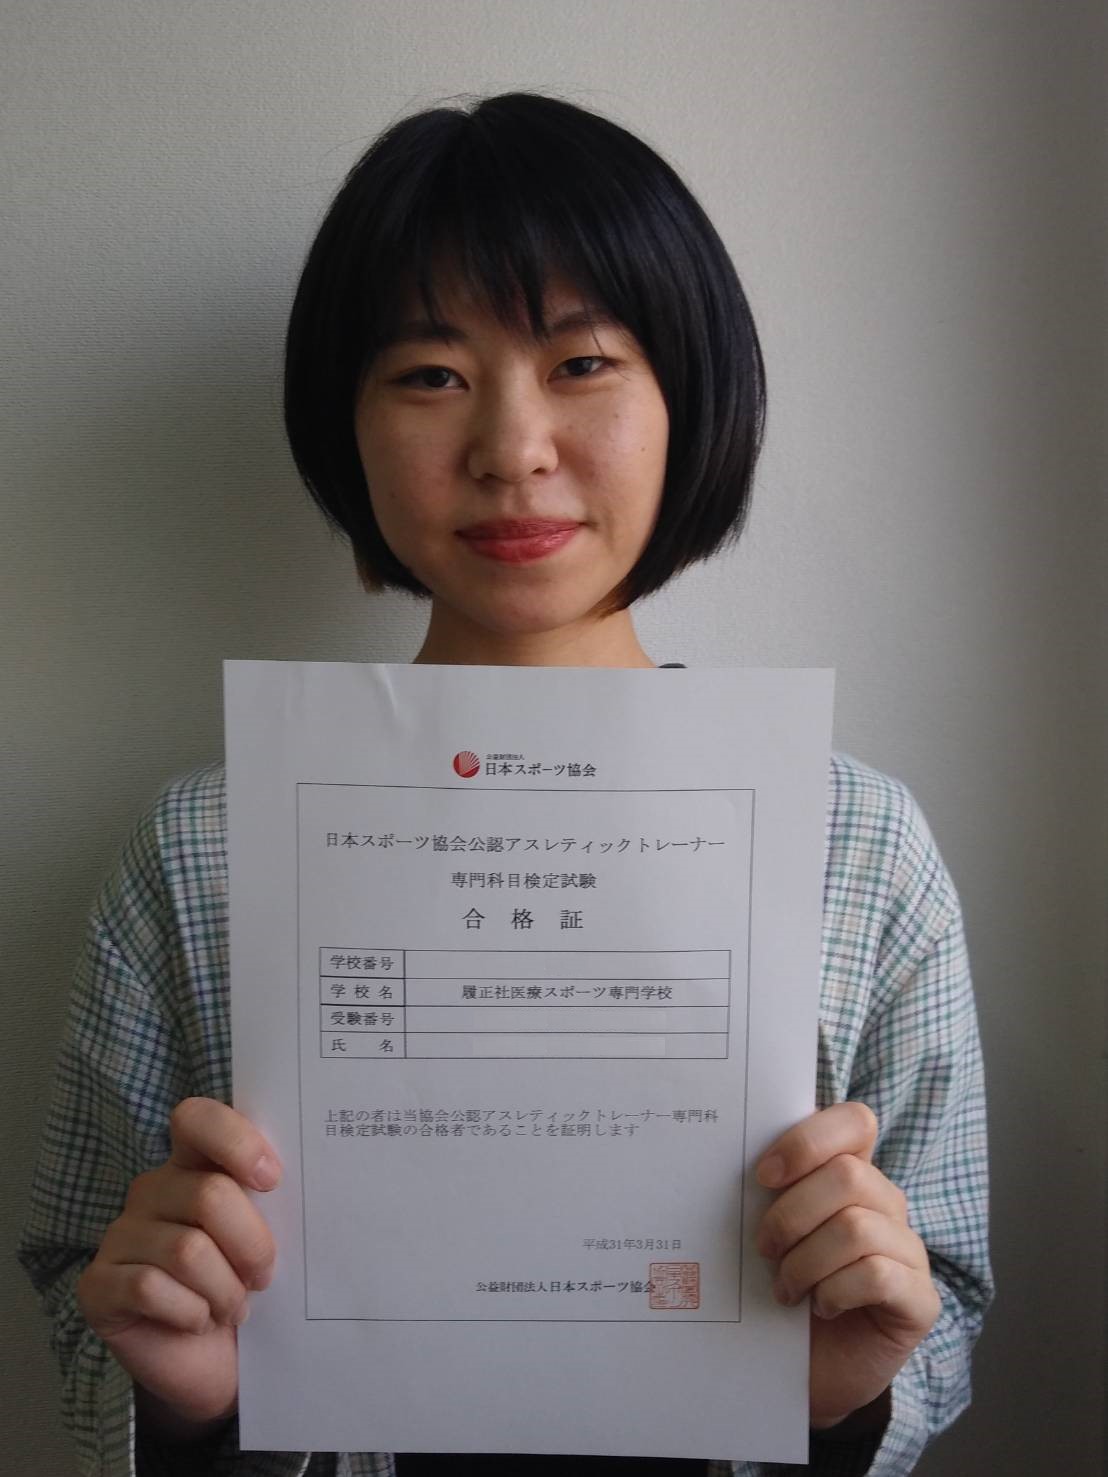 公益財団法人
日本スポーツ協会
日本スポーツ協会公認アスレティックトレーナー
専門科目検定試験
合格証
学校番号
学校名 履正社医療スポーツ専門学校
受験番号
氏名
上記の者は当協会公認アスレティックトレーナー専門科
目検定試験の合格者であることを証明します
平成31年3月31日
公益財団法人日本スポーツ協会